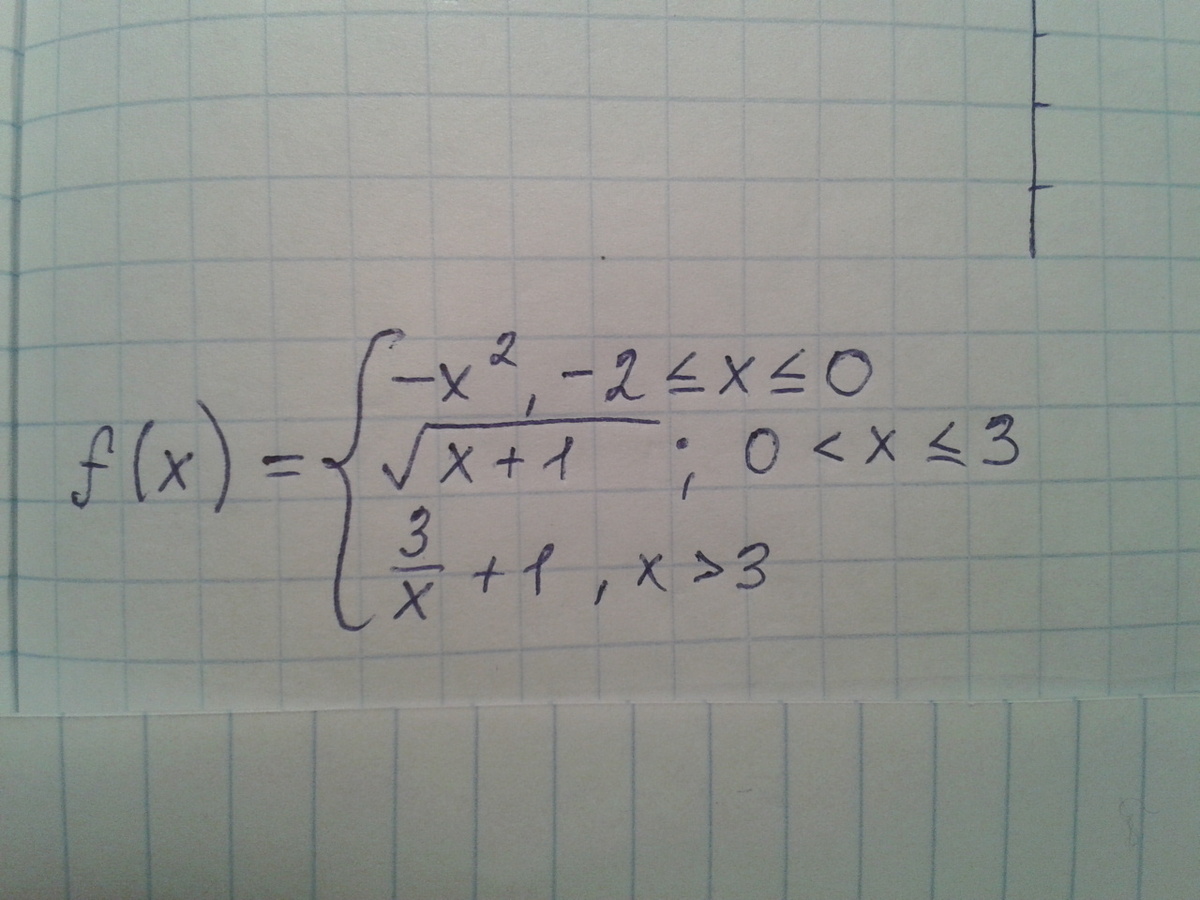 f(x) = { -x², -2 ≤ x ≤ 0
√(x+1) ; 0 < x ≤ 3
3/x + 1 , x > 3